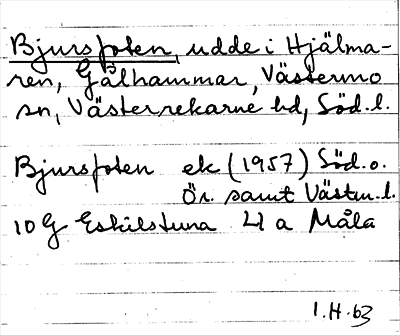 Bjursfoten, udde i Hjälma-
ren, Gålhammar, Västermo
sn, Västerrekarne hd, Söd.l.
Bjursfoten ek (1957) Söd.o.
Ör. samt Västm.l.
10G Eskilstuna 4 a Måla
I.H.63